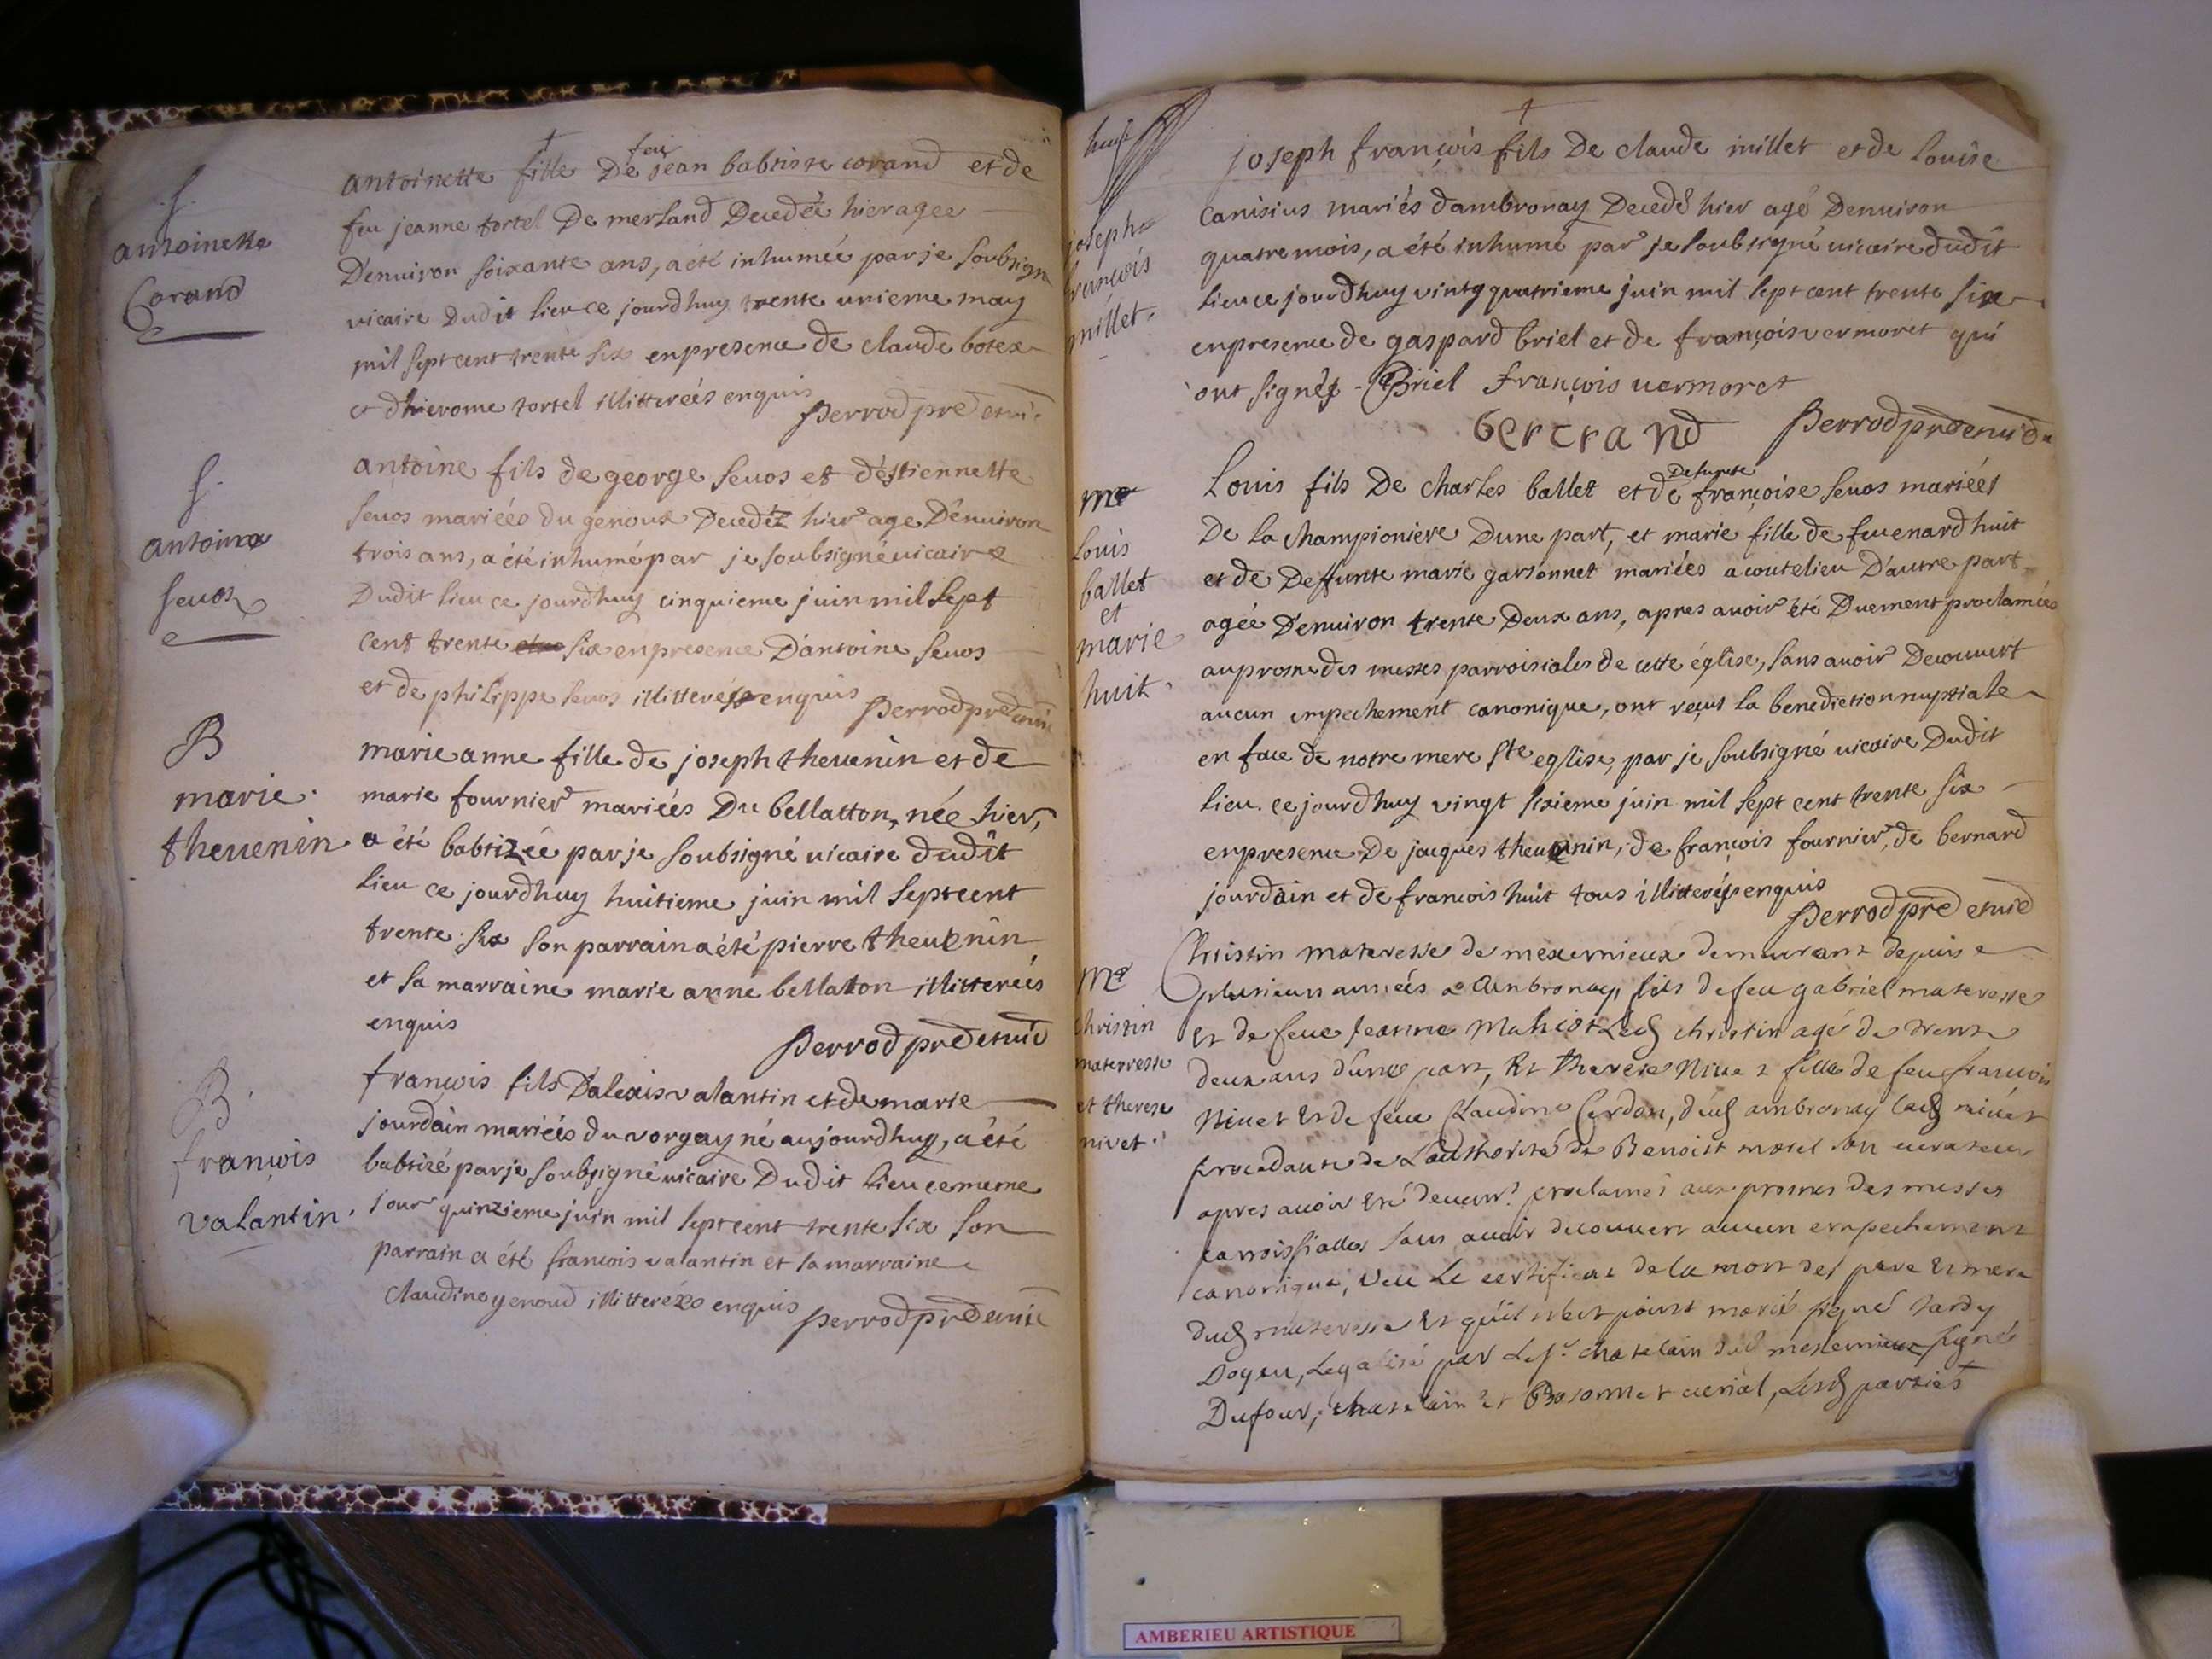 f.
antoinette
Corand
antoinette fille De feu jean babtiste corand et de
feu jeanne tortel De merland Decedée hier agee
D'enuiron soixante ans, a été inhumée par je soubsigné
vicaire Dudit lieu ce jourdhuy trente unieme may
mil sept cent trente six enpresence de claude botex
et dhierome tortel illitterées enquis
perrod pre et vi.
f.
antoine
seuos
antoine fils de george seuos et d'éstiennette
seuos mariées du genoux Decedéz hier age D'enuiron
trois ans, a été inhumé par je soubsigné uicaire
Dudit lieu ce jourdhuy cinquieme juin mil sept
cent trente six enpresence D'antoine seuos
et de philippe seuos illitterés enquis
perrod pre
B
marie
theuenin
marie anne fille de joseph theuenin et de
marie fournier mariéés Du bellatton, née hier,
a été babtizée par je soubsigné uicaire dudit
lieu ce jourdhuy huitieme juin mil sept cent
trente six son parrain a été pierre theuenin
et sa marraine marie anne bellaton illitterées
enquis
perrod pre et uic
B
françois
valantin
françois fils D'alexis valantin et de marie
jourdain mariéés du vorgey né aujourdhuy, a été
babtizé par je soubsigné uicaire Dudit lieu ce meme
jour quinzieme juin mil sept cent trente six son
parrain a été francois valantin et sa marraine
claudine genoud illitterées enquis
perrod pre et uic
huit
joseph
françois
millet
joseph françois fils De claude millet et de Louise
canisius mariés d'ambronay Decedé hier agé Denuiron
quatre mois, a été inhumé par je soubsigné uicaire dudit
lieu ce jourdhuy vintg quatrieme juin mil sept cent trente six
enpresence de gaspard briel et de françois vermoret qui
ont signés Briel françois uermoret
bertrand
perrod pre et uic
me
Louis
ballet
et
marie
huit
Louis fils De charles ballet et de Defunte françoise seuos mariéés
De la championiere Dune part, et marie fille de feu enard huit
et de Deffunte marie garsonnet mariéés a coutelieu D'autre part
agée D'enuiron trente Deux ans, apres auoir été Duement proclamées
au prosne des messes parroisiales de cette église, sans auoir Decouuert
aucun empechement canonique, ont reçut la benediction nuptiale
en face de notre mere ste eglise, par je soubsigné uicaire Dudit
lieu ce jourdhuy vingt sixieme juin mil sept cent trente six
enpresence De jacques theuenin, de françois fournier, de bernard
jourdain et de francois huit tous illitterés enquis
perrod pre et uic
me
christin
materresse
et therese
nivet
Christin materesse de meximieux demeurant depuis
plusieurs années a Ambronay, fils de feu gabriel materesse
et de feue jeanne Mahiot led christin agé de trente
deux ans d'une part, Et therese Niuet fille de feu françois
Niuet et de feue Claudine Cerdon, dud ambronay lad niuet
procedante de L'authorité de Benoist morel son curateur
apres auoir été deuemt proclamés aux prosnes des messes
parroissialles sans auoir decouuert aucun empechement
canonique, veu le certificat de la mort des pere et mere
dud materesse et qu'il n'est point marié signé tardy
Doyen, legalisé par le sr. chatelain dud meximieux signé
Dufour, chatelain et, lesd parties
AMBERIEU ARTISTIQUE